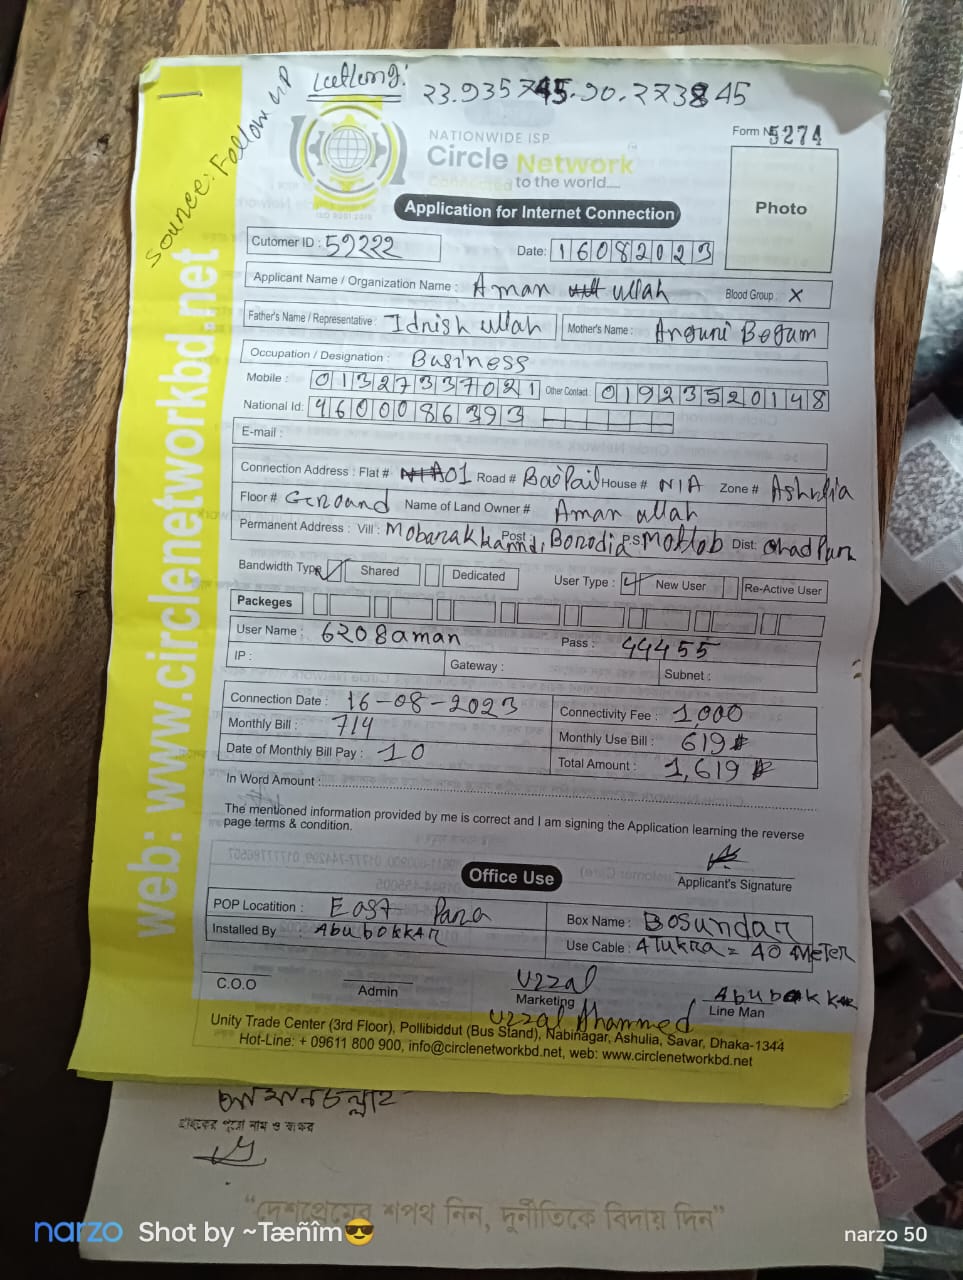 Source: Follow UP
Latlong: 23.935745.90.273845
NATIONWIDE ISP
Circle Network
Connected to the world....
ISO 9001:2015
Form No 5274
Photo
Application for Internet Connection
Cutomer ID : 59222 Date: 16082023
Applicant Name / Organization Name : Aman ullah Blood Group : X
Father's Name / Representative : Idrish ullah Mother's Name : Anguni Begum
Occupation / Designation : Business
Mobile : 01327337021 Other Contact 01923520148
National Id: 4600086393
E-mail :
Connection Address : Flat # A01 Road # BaiPail House # N/A Zone # Ashulia
Floor # Ground Name of Land Owner # Aman ullah
Permanent Address : Vill : Mobarakhamndi Post : Borodia P.S Motlob Dist: Chadpur
Bandwidth Type Shared Dedicated User Type : New User Re-Active User
Packeges
User Name : 6208aman Pass : 44455
IP : Gateway : Subnet :
Connection Date : 16-08-2023 Connectivity Fee : 1,000
Monthly Bill : 714 Monthly Use Bill : 619
Date of Monthly Bill Pay : 10 Total Amount : 1,619
In Word Amount :
The mentioned information provided by me is correct and I am signing the Application learning the reverse
page terms & condition.
Applicant's Signature
Office Use
POP Locatition : East Para Box Name : Bosundar
Installed By : Abubokkar Use Cable : 4 Tukra = 40 Meter
C.O.O Admin Uzzal Marketing Abubokkar Line Man
Uzzal Ahammed
Unity Trade Center (3rd Floor), Pollibiddut (Bus Stand), Nabinagar, Ashulia, Savar, Dhaka-1344
Hot-Line: + 09611 800 900, info@circlenetworkbd.net, web: www.circlenetworkbd.net
web: www.circlenetworkbd.net
আমানউল্লাহ
গ্রাহকের পুরো নাম ও স্বাক্ষর
“দেশপ্রেমের শপথ নিন, দুর্নীতিকে বিদায় দিন”
narzo Shot by ~Tæñîm😎 narzo 50